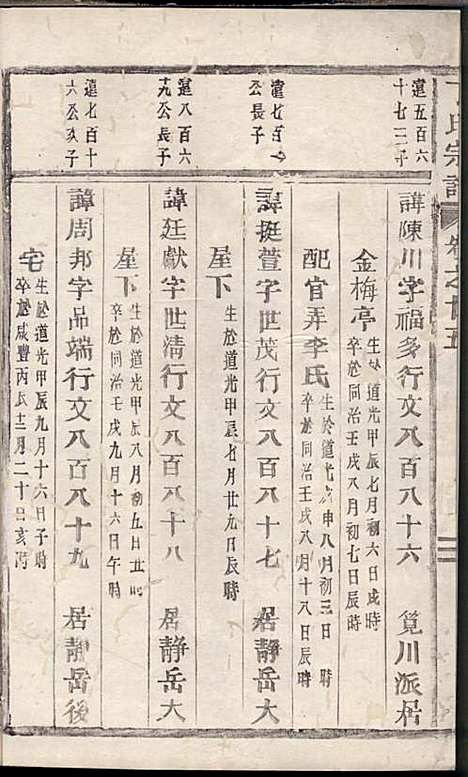 丁氏宗譜 卷之廿五
遠五百六
十七二子
諱陳川字福多行文八百八十六 筧川派居
金梅亭 生於道光甲辰七月初六日戌時
卒於同治壬戌八月初七日辰時
配官弄李氏 生於道光 申八月初三日 時
卒於同治壬戌八月十八日辰時
遠七百
公長子
諱挺萱字世茂行文八百八十七 居靜岳大
屋下 生於道光甲辰七月廿九日辰時
遠八百六
十九公長子
諱廷獻字世清行文八百八十八 居靜岳大
屋下 生於道光甲辰八月初五日丑時
卒於同治壬戌九月十六日午時
遠七百十
六公次子
諱周邦字品端行文八百八十九 居靜岳後
宅 生於道光甲辰九月十六日子時
卒於咸豐丙辰十二月二十日亥時